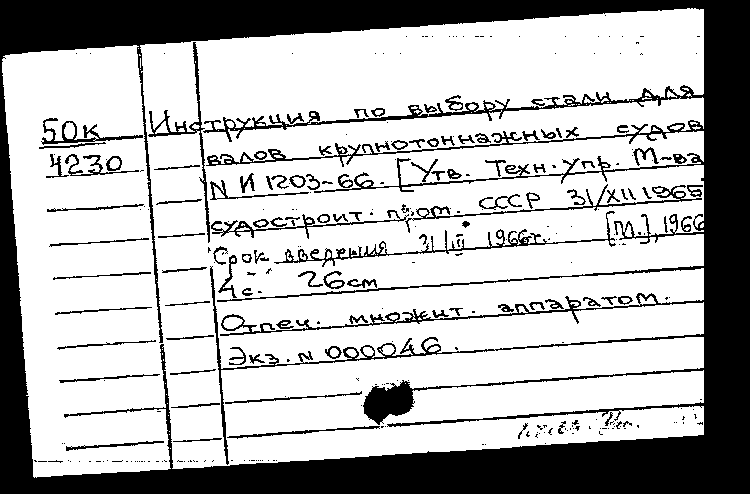 50к
4230
Инструкция по выбору стали для
валов крупнотоннажных судов
N И 1203-66. [Утв. Техн. упр. М-ва
судостроит. пром. СССР 31/XII 1965
Срок введения 31/III 1966г. [М.], 1966
4 с. 26см
Отпеч. множит. аппаратом.
Экз. N 000046.